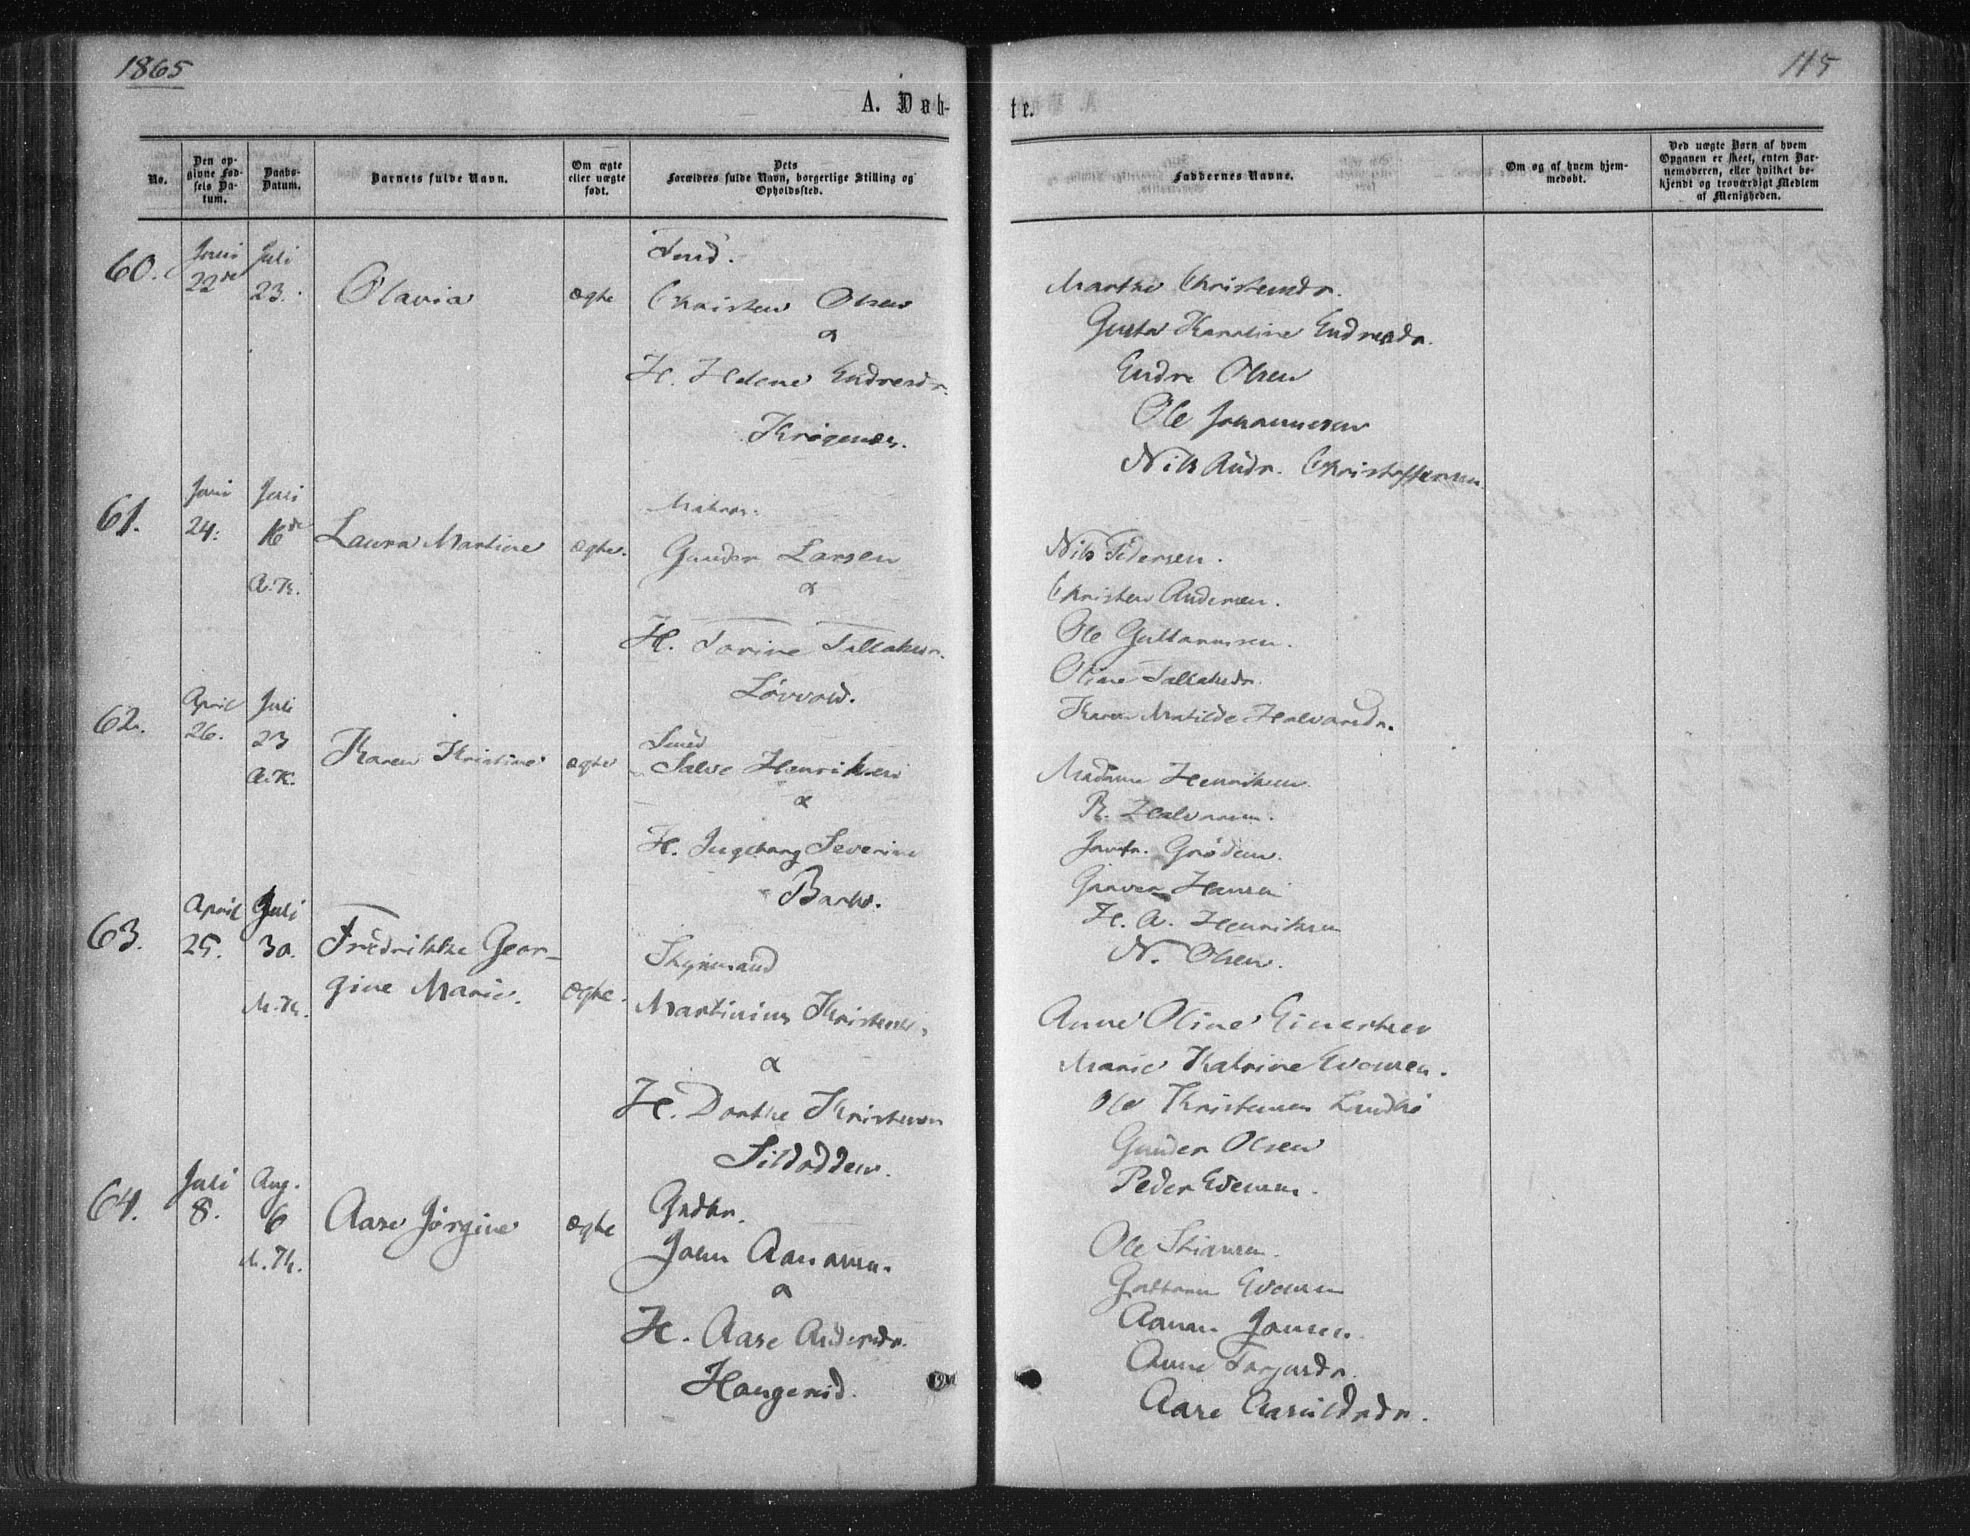 1865
115
A. Døb-
te.
No.
Den op-
givne Fød-
sels Da-
tum.
Daabs-
Datum.
Barnets fulde Navn.
Om ægte
eller uægte
født.
Dets
Forældres fulde Navn, borgerlige Stilling og
Opholdssted.
Faddernes Navne.
Om og af hvem hjem-
medøbt.
Ved uægte Børn af hvem
Opgaven er skeet, enten Bar-
nemoderen, eller hvilket be-
kjendt og troværdigt Medlem
af Menigheden.
60.
Juni
22de
Juli
23.
Olavia
ægte
Christen Olsen
&
H. Helene Endresdr.
Krøgenæs.
Marthe Christensdr.
Gusta Karoline Endresdr.
Endre Olsen
Ole Johannesen
Nils Andr. Christoffersen
61.
Juni
24.
Juli
16de
A.K.
Laura Martine
ægte.
Matros.
Gunder Larsen
&
H. Torine Tellaksdr.
Løvvold.
Nils Pedersen.
Christen Andersen.
Ole Guttormsen.
Oline Tallaksdr.
Karen Matilde Halvorsdr.
62.
April
26.
Juli
23
A.K.
Karen Kristine
ægte
Smed
Salve Henriksen
&
H. Ingeborg Severine
Barbo.
Madame Henriksen
R. Halvorsen.
Jomfr. Grødem.
Graver Hansen
H. A. Henriksen
N. Olsen.
63.
April
25.
Juli
30.
M.Th.
Fredrikke Geor-
gine Marie.
ægte.
Styrmand
Martinius Kristensen
&
H. Dorthe Kristensen
Sildodden.
Anne Oline Einertsen
Marie Katrine Evensen.
Ole Kristensen
Gunder Olsen
Peder Evensen.
64.
Juli
8.
Aug.
6
M.Th.
Aase Jørgine
ægte
Grdbr.
John Aanonsen.
&
H. Aase Andersdr.
Haugerød.
Ole
Guttorm Evensen
Aanon Jonsen.
Anne Torjusdr.
Aase Aasuldsdr.